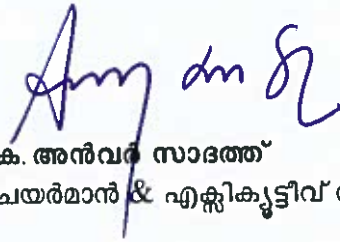 അൻവർ സാദത്ത്
ചെയർമാൻ & എക്സിക്യൂട്ടീവ്